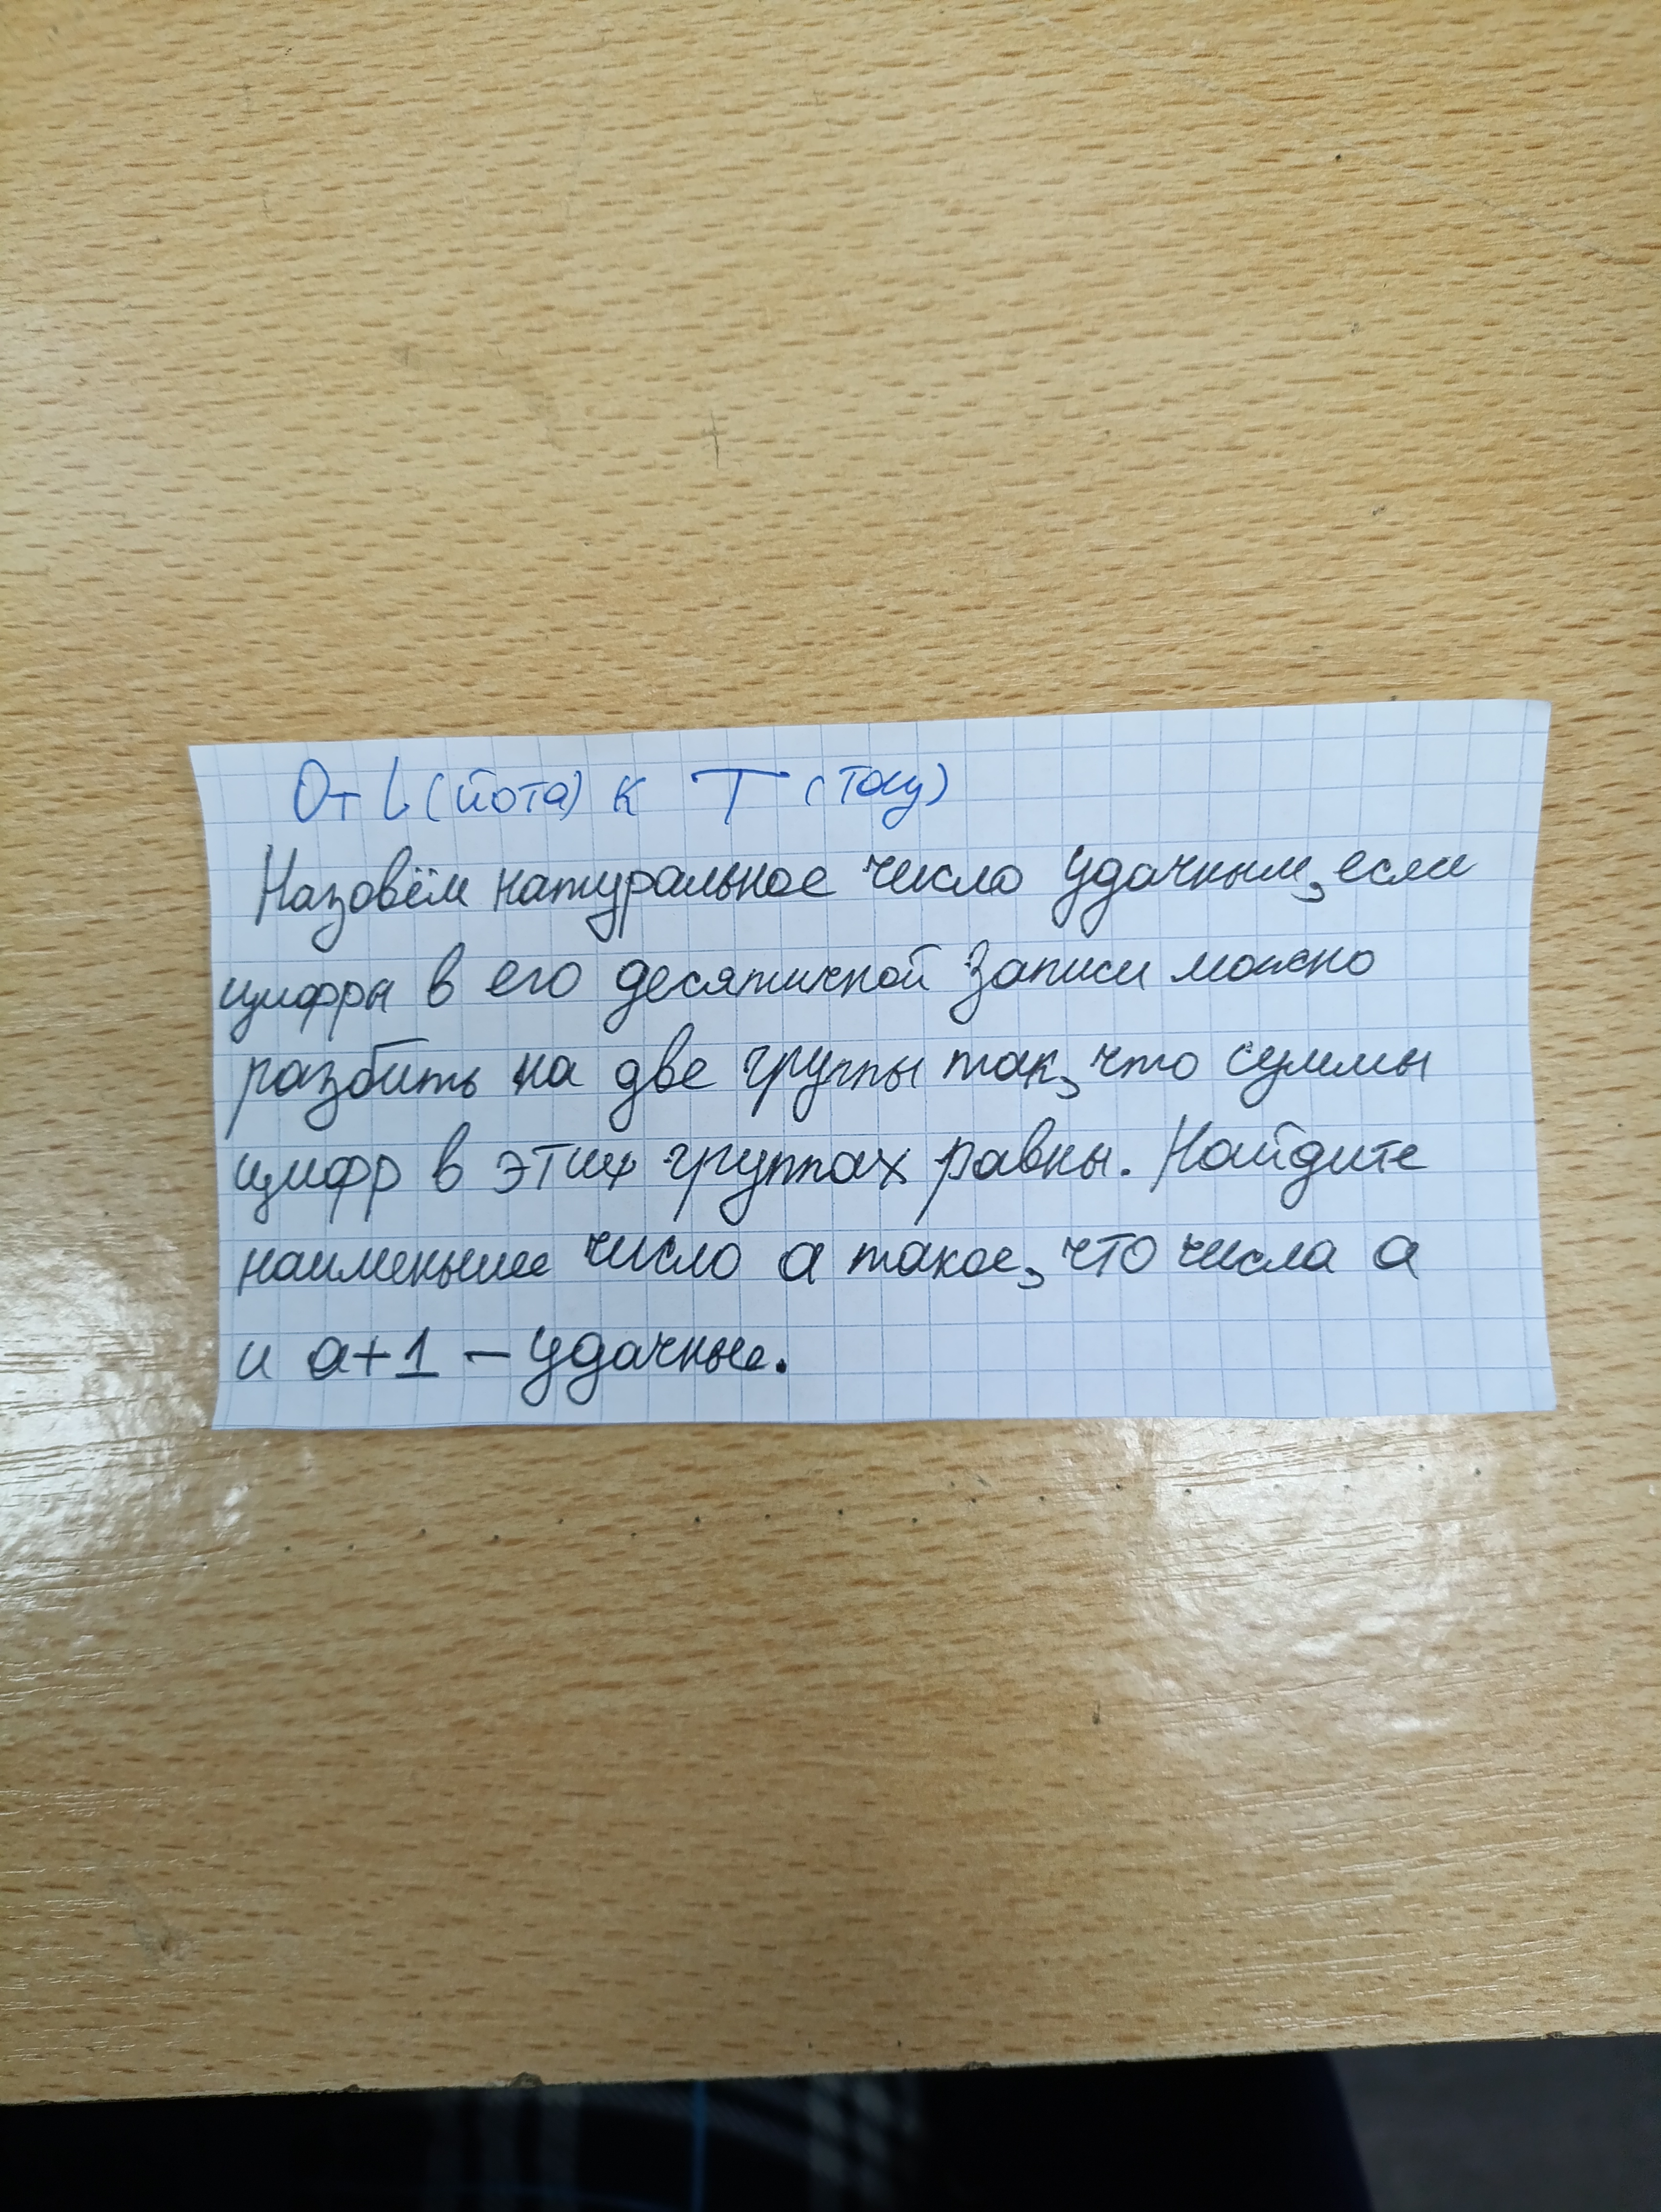 От ι (йота) к Τ (тау)
Назовём натуральное число удачным, если
цифры в его десятичной записи можно
разбить на две группы так, что суммы
цифр в этих группах равны. Найдите
наименьшее число a такое, что числа a
и a+1 – удачные.